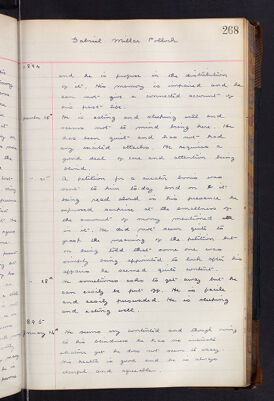 268
Gabriel Millar Pollock
1894
and he is profuse in the distribution
of it. His memory is impaired and he
can not give a connected account of
his past life.
He is eating and sleeping well and
seems not to mind being here. He
has been quiet and has not had
any excited attacks. He requires a
good deal of care and attention being
blind.
A petition for a curator bonis was
sent to him to-day and on it
being read aloud in his presence he
expressed surprise at the smallness of
the amount of money mentioned
in it. He did not seem quite to
grasp the meaning of the petition but
on being told that some one was
simply being appointed to look after his
affairs he seemed quite content.
He sometimes asks to get away but he
can easily be put off. He is facile
and easily persuaded. He is sleeping
and eating well.
1895
He seems very contented and though owing
to his blindness he has no
he does not seem to weary.
His health is good and he is always
cheerful and agreeable.